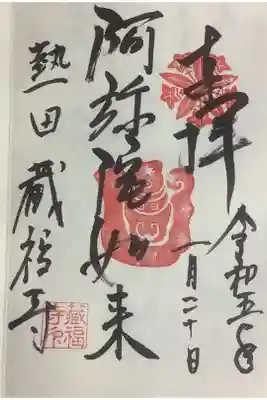 奉拝
令和五年
一月二十日
阿弥陀如来
熱田 蔵福寺
藏福
寺印